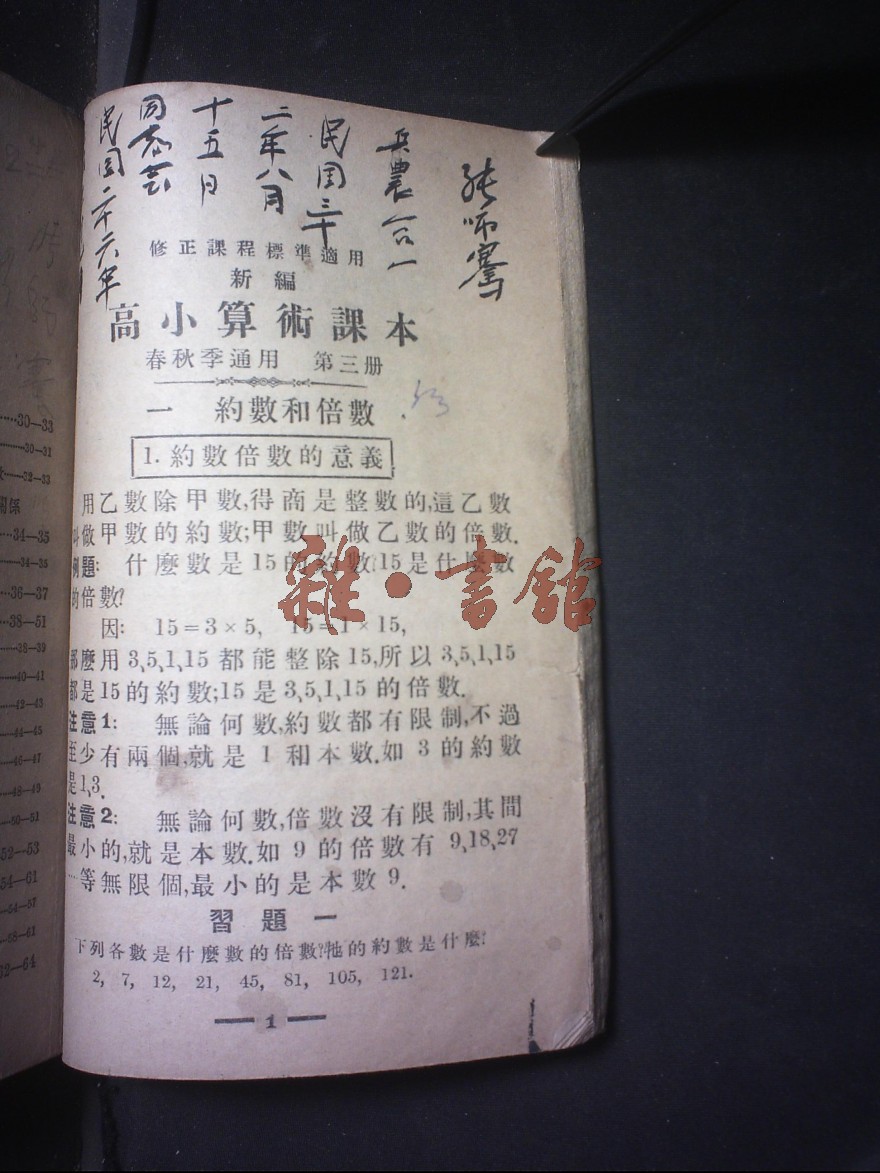 兵農合一
民国三十
二年八月
十五日
民国二十六年
修正課程標準適用
新編
高小算術課本
春秋季通用 第三册
一 約數和倍數
1. 約數倍數的意義
用乙數除甲數,得商是整數的,這乙數
叫做甲數的約數;甲數叫做乙數的倍數.
例題: 什麼數是15的約數?15是什麼數
的倍數?
因: 15=3×5, 15=1×15,
那麼用3、5、1、15都能整除15,所以3、5、1、15
都是15的約數;15是3、5、1、15的倍數.
注意1: 無論何數,約數都有限制,不過
至少有兩個,就是1和本數.如3的約數
是1、3.
注意2: 無論何數,倍數沒有限制,其間
最小的,就是本數.如9的倍數有9、18、27
…等無限個,最小的是本數9.
習題一
下列各數是什麼數的倍數?牠的約數是什麼?
2, 7, 12, 21, 45, 81, 105, 121.
1
雜·書館
30—33
30—31
32—33
關係
34—35
34—35
36—37
38—51
38—39
40—41
42—43
44—45
46—47
48—49
50—51
52—53
54—61
54—57
58—61
62—64